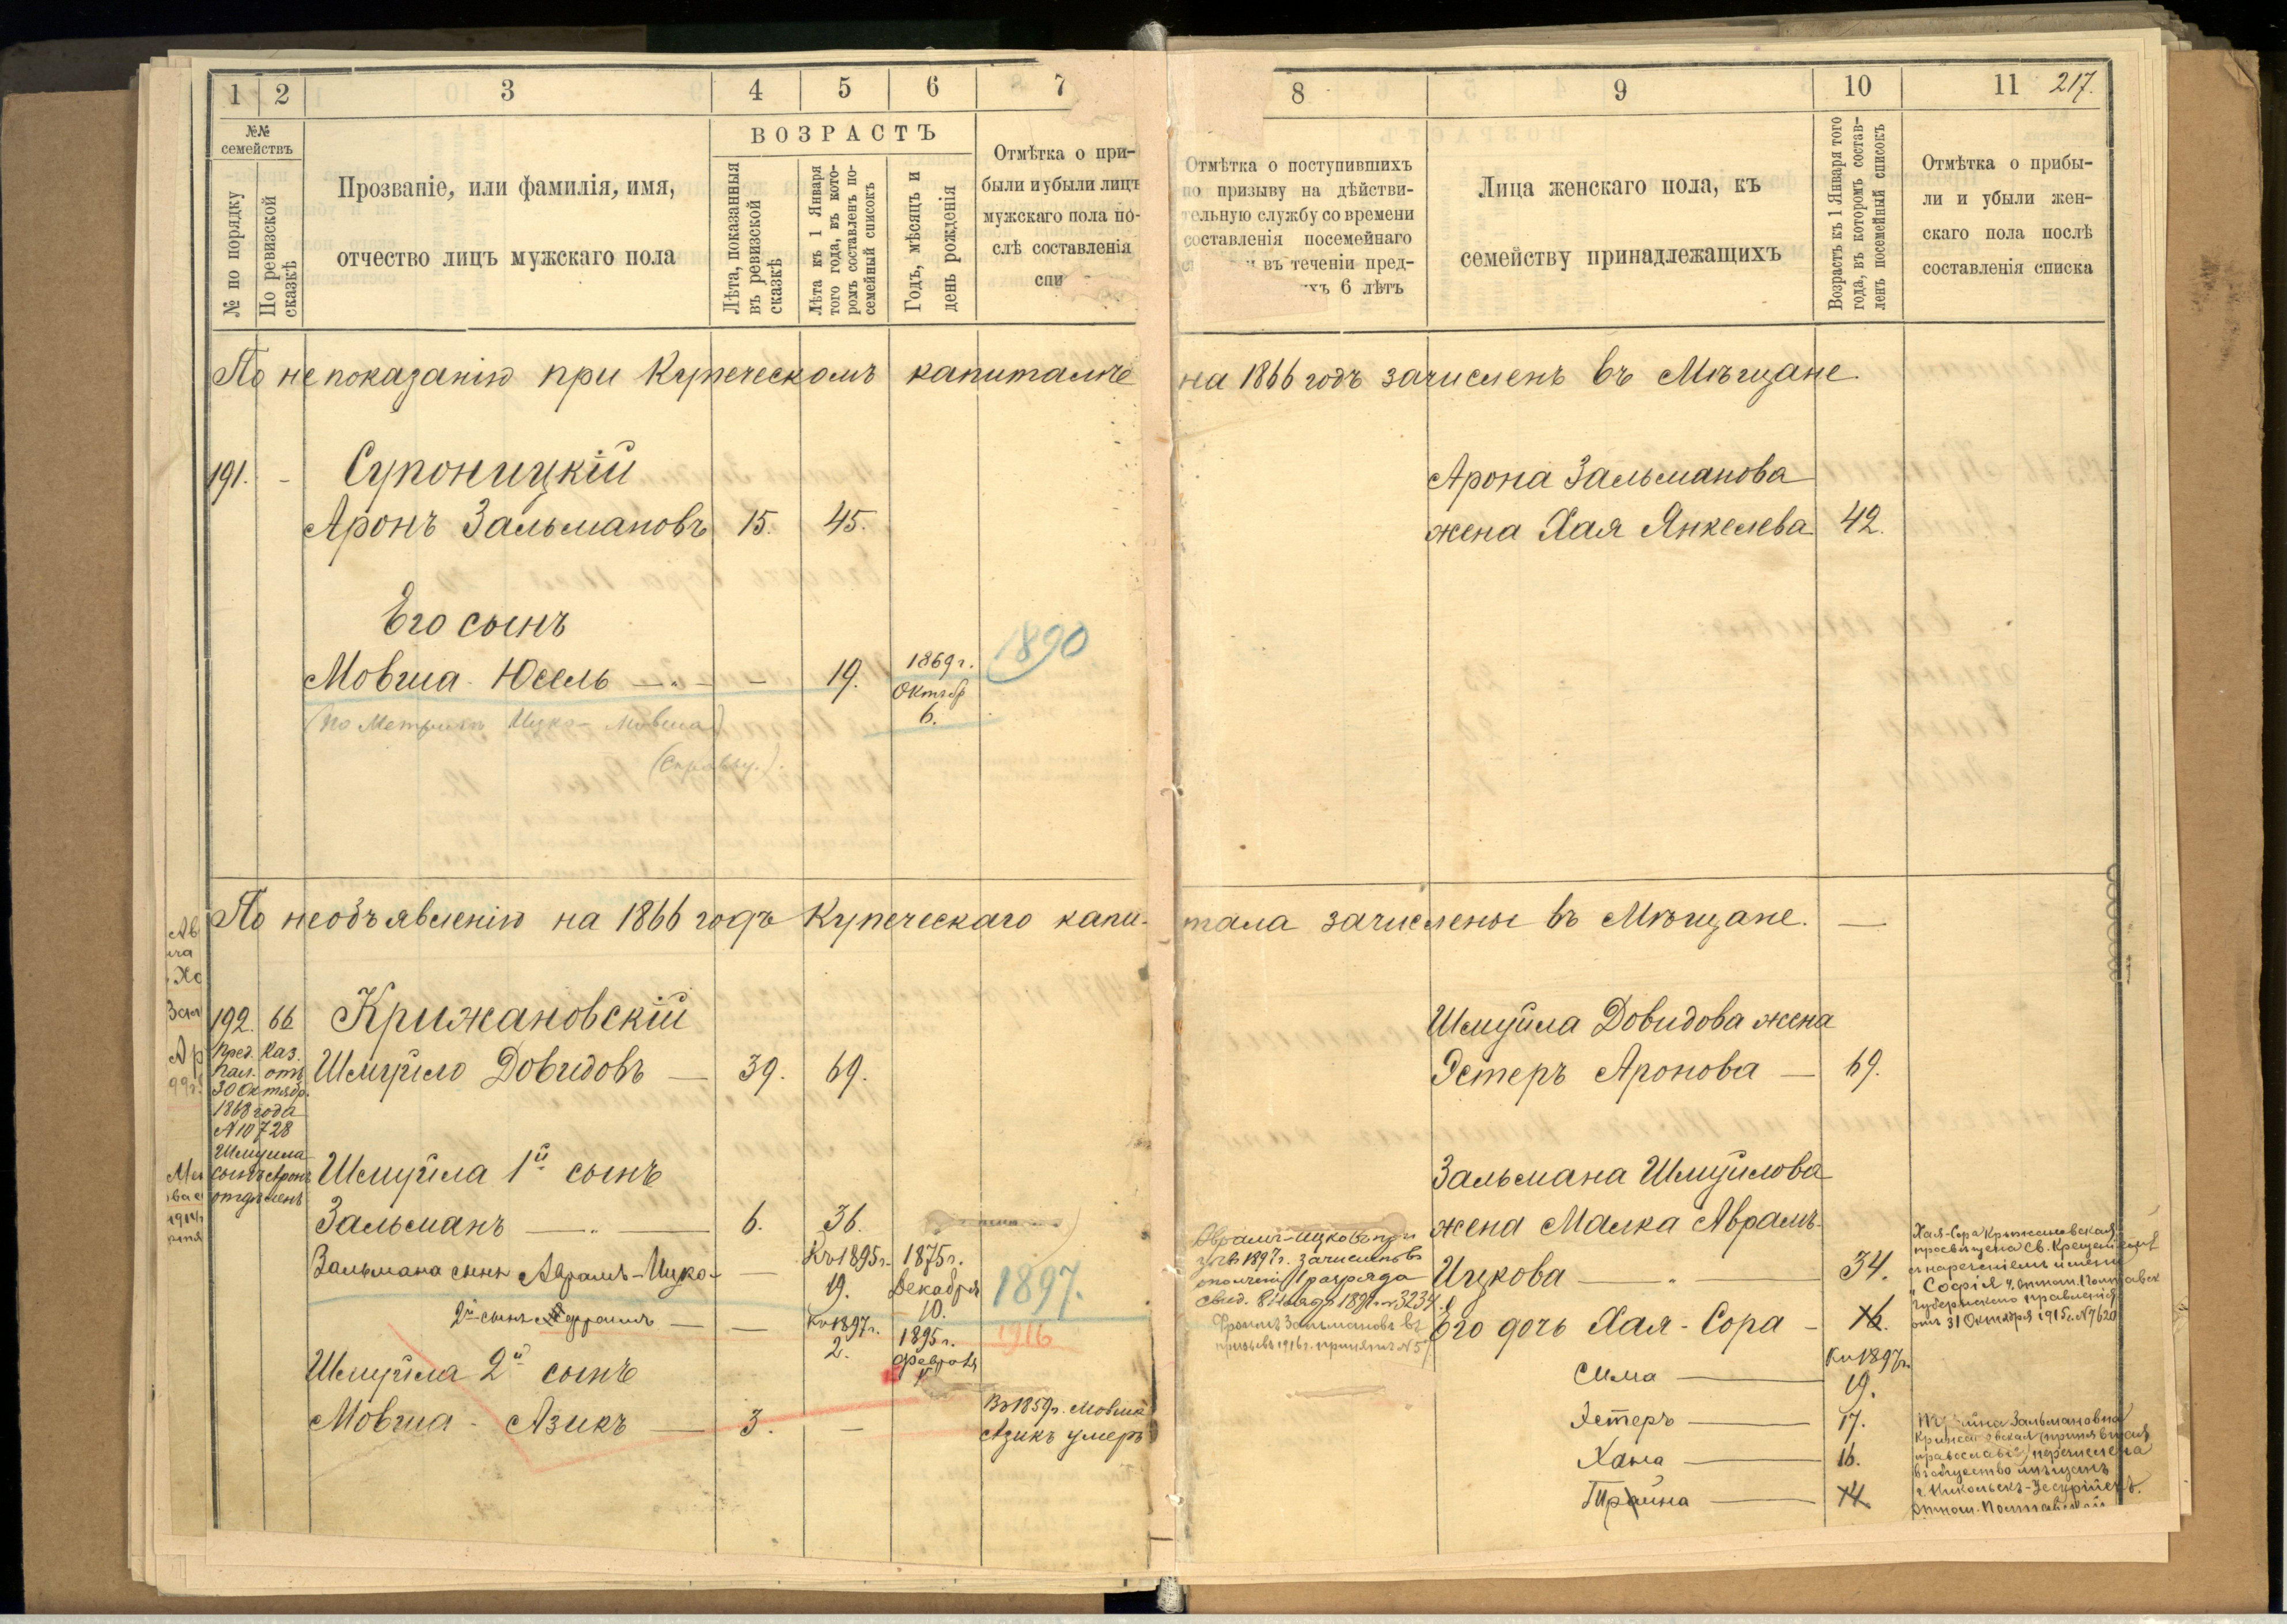 1 2 3 4 5 6 7
№№ семействъ
№ по порядку
По ревизской сказкѣ
Прозваніе, или фамилія, имя,
отчество лицъ мужскаго пола
ВОЗРАСТЪ
Лѣта, показанныя
въ ревизской
сказкѣ
Лѣта къ 1 Января
того года, въ кото-
ромъ составленъ по-
семейный списокъ
Годъ, мѣсяцъ и
день рожденія
Отмѣтка о при-
были и убыли лицъ
мужскаго пола по-
слѣ составленія
спи
По непоказанію при Купеческомъ капиталѣ
191. -
Супоницкій
Аронъ Зальмановъ 15. 45.
Его сынъ
Мовша-Юсель — „ — — 19. 1869 г.
Октябр
6.
1890
(по Метрикѣ Ицко-Мовша)
По необъявленію на 1866 годъ Купеческаго капи-
192. 66
Крижановскій
Шмуйло Довидовъ — 39. 69.
Пред. Каз.
Пал. отъ
30 Октябр.
1868 года
№ 10728
Шмуила
сынъ Аронъ
отдѣленъ
Шмуйла 1й сынъ
Зальманъ — „ — 6. 36.
Зальмана сынъ Аврамъ-Ицко — — Къ 1895 г.
19.
1875 г.
Декабря
10.
1897.
2й сынъ — — Къ 1897 г.
2.
1895 г.
Февраля
1916
Шмуйла 2й сынъ
Мовша-Азикъ — 3. —
Въ 1859 г. Мовша
Азикъ умеръ
8 9 10 11 217.
Отмѣтка о поступившихъ
по призыву на дѣйстви-
тельную службу со времени
составленія посемейнаго
въ теченіи пред-
ихъ 6 лѣтъ
Лица женскаго пола, къ
семейству принадлежащихъ
Возрастъ къ 1 Января того
года, въ которомъ состав-
ленъ посемейный списокъ
Отмѣтка о прибы-
ли и убыли жен-
скаго пола послѣ
составленія списка
на 1866 годъ зачисленъ въ Мѣщане.
Арона Зальманова
жена Хая Янкелева 42.
тала зачислены въ Мѣщане. —
Шмуйла Довидова жена
Эстеръ Аронова — 69.
Зальмана Шмуйлова
жена Малка Аврамъ-
Ицкова — „ — 34.
Его дочь Хая-Сора — 16.
Къ 1897 г.
Сима — 19.
Эстеръ — 17.
Хана — 16.
Тирайна — 14.
Аврамъ-Ицко при
1897 г. зачисленъ въ
ополченіе 1 разряда
свид. 1897 № 3234.
Зальмановъ въ
призывъ 1916 г. принятъ № 5
Хая-Сора Крыжановская
просвящена Св. Крещеніемъ
съ нареченіемъ имени
„Софія“ отнош. Полтавск
Губернскаго Правленія
отъ 31 Октября 1915 г. № 7620
Зальмановна
принявшая
православіе, перечислена
въ общество мѣщанъ
г. Никольскъ-Уссурійскъ.
отнош. Полтавской